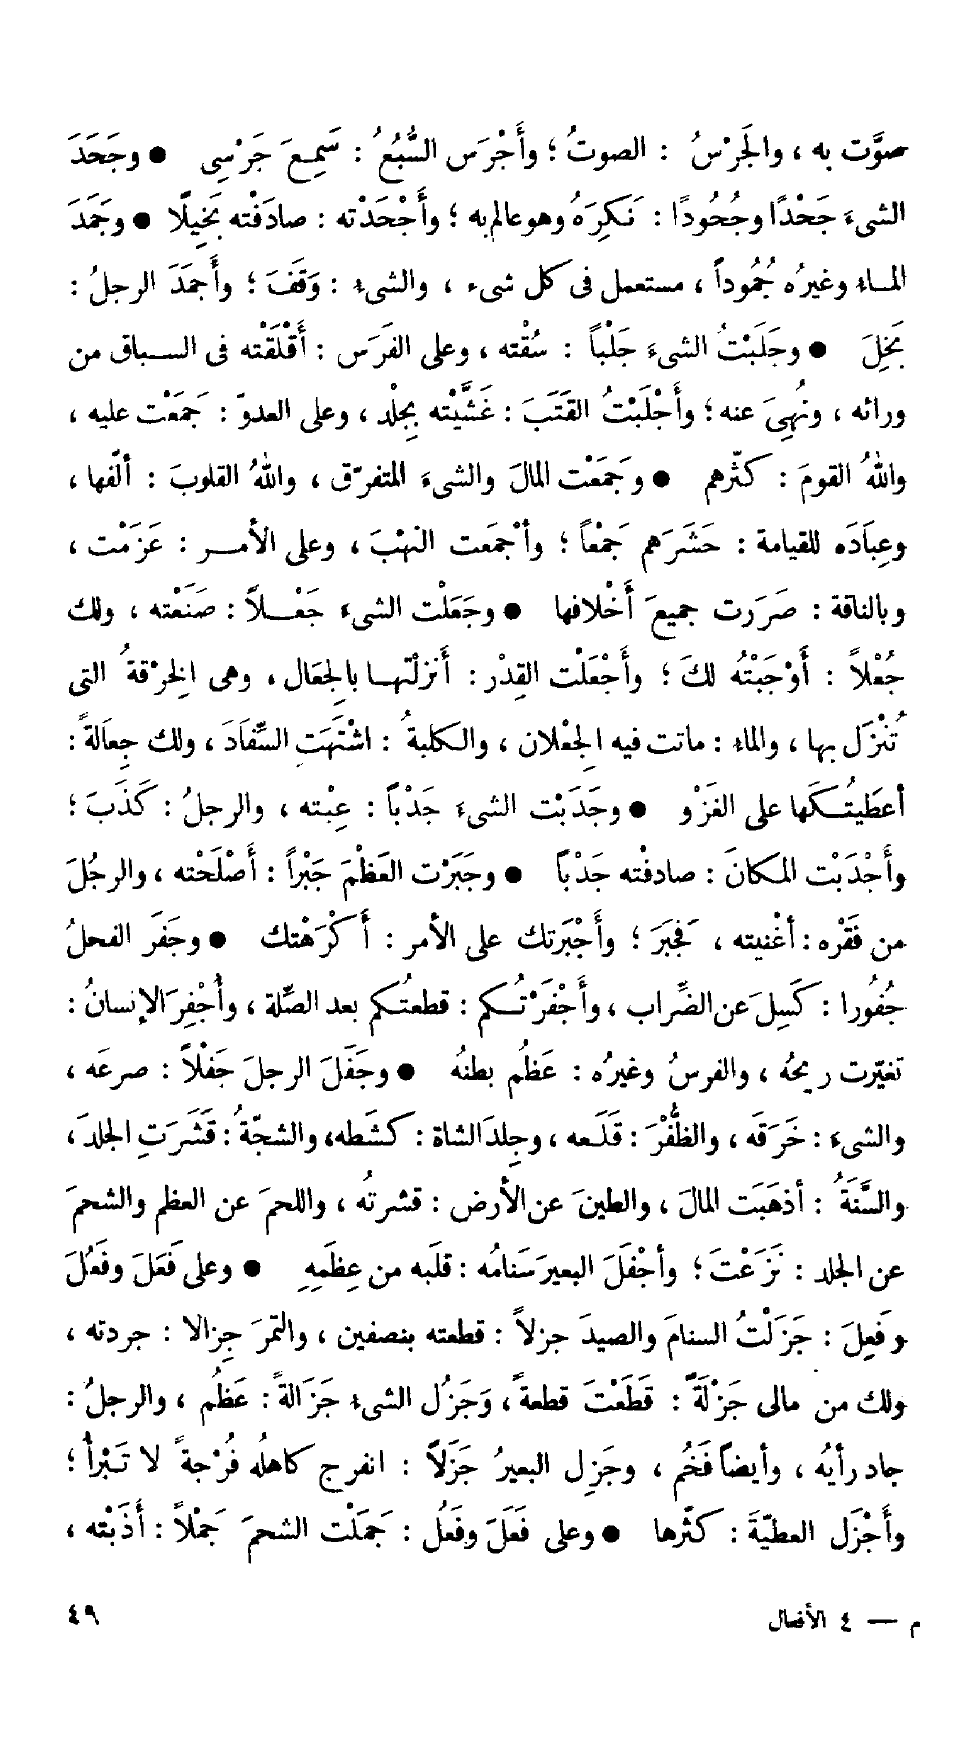 صوَّت به ، والجَرْسُ : الصوتُ ؛ وأَجْرَس السَّبُعُ : سَمِعَ جَرْسِى ● وجَحَدَ
الشىءَ جَحْدًا وجُحُودًا : نَكِرَهُ وهو عالم به ؛ وأَجْحَدْته : صادَفْته بَخِيلًا ● وجَمَدَ
الماء وغيرُه جُمُوداً ، مستعمل فى كل شىء ، والشىء : وَقَفَ ؛ وأَجمَدَ الرجلُ :
بَخِلَ ● وجَلَبْتُ الشىءَ جَلْباً : سُقْته ، وعلى الفَرَس : أَقْلَقْته فى السباق من
ورائه ، ونُهِىَ عنه ؛ وأَجْلَبْتُ القَتَبَ : غَشَّيْته بِجلْد ، وعلى العدوّ : جَمَعْت عليه ،
واللهُ القومَ : كثّرهم ● وجَمَعْت المالَ والشىءَ المتفرّق ، واللهُ القلوبَ : ألّفها ،
وعِبَادَه للقيامة : حَشَرَهم جَمْعاً ؛ وأجْمَعت النهْبَ ، وعلى الأمر : عَزَمْت ،
وبالناقة : صَرَرت جميعَ أَخْلافها ● وجَعَلْت الشىء جَعْلاً : صَنَعْته ، ولك
جُعْلاً : أَوْجَبْتُه لكَ ؛ وأَجْعَلْت القِدْر : أَنزلْتها بالجِعَال ، وهى الخِرْقةُ التى
تُنْزَل بها ، والماء : ماتت فيه الجِعْلان ، والكلبةُ : اشْتَهَتِ السِّفَادَ ، ولك جِعَالةً :
أعطَيتُكَها على الغَزْو ● وجَدَبْت الشىءَ جَدْباً : عِبْته ، والرجلُ : كَذَبَ ؛
وأَجْدَبْت المكانَ : صادفْته جَدْبًا ● وجَبَرْت العَظْمَ جَبْراً : أَصْلَحْته ، والرجُلَ
من فَقْره : أغْنيته ، فَجَبَرَ ؛ وأَجْبَرتك على الأمر : أَكْرَهْتك ● وجَفَر الفحلُ
جُفُورا : كَسِلَ عن الضِّراب ، وأَجْفَرْتُكم : قطعتُكم بعد الصِّلة ، وأُجْفِرَ الإنسانُ :
تغيّرت ريحُه ، والفرسُ وغيرُه : عَظُم بطنُه ● وجَفَلَ الرجلَ جَفْلاً : صرعَه ،
والشىءَ : خَرَقَه ، والظُّفْرَ : قَلَعه ، وجِلدَ الشاة : كشَطه، والشجّةُ : قَشَرَتِ الجلدَ ،
والسَّنَةُ : أذهَبَت المالَ ، والطينَ عن الأرض : قشرتُه ، واللحمَ عن العظم والشحمَ
عن الجلد : نَزَعْتَ ؛ وأجْفَلَ البعيرَ سَنَامُه : قلَبه من عِظَمِهِ ● وعلى فَعَلَ وفَعُلَ
وفَعِلَ : جَزَلْتُ السنامَ والصيدَ جزلاً : قطعته بنصفين ، والتمرَ جِزالا : جردته ،
ولك من مالى جَزْلَةً : قَطَعْتَ قطعةً ، وَجَزُل الشىء جَزَالةً : عَظُم ، والرجلُ :
جاد رأيُه ، وأيضاً فَخُم ، وجَزِل البعيرُ جَزَلاً : انفرج كاهلُه فُرْجةً لا تَبْرأُ ؛
وأَجْزَل العطيّةَ : كثّرها ● وعلى فَعَلَ وفَعُل : جمَلْت الشحمَ جَمْلاً : أَذَبْته ،
م — ٤ الأفعال
٤٩